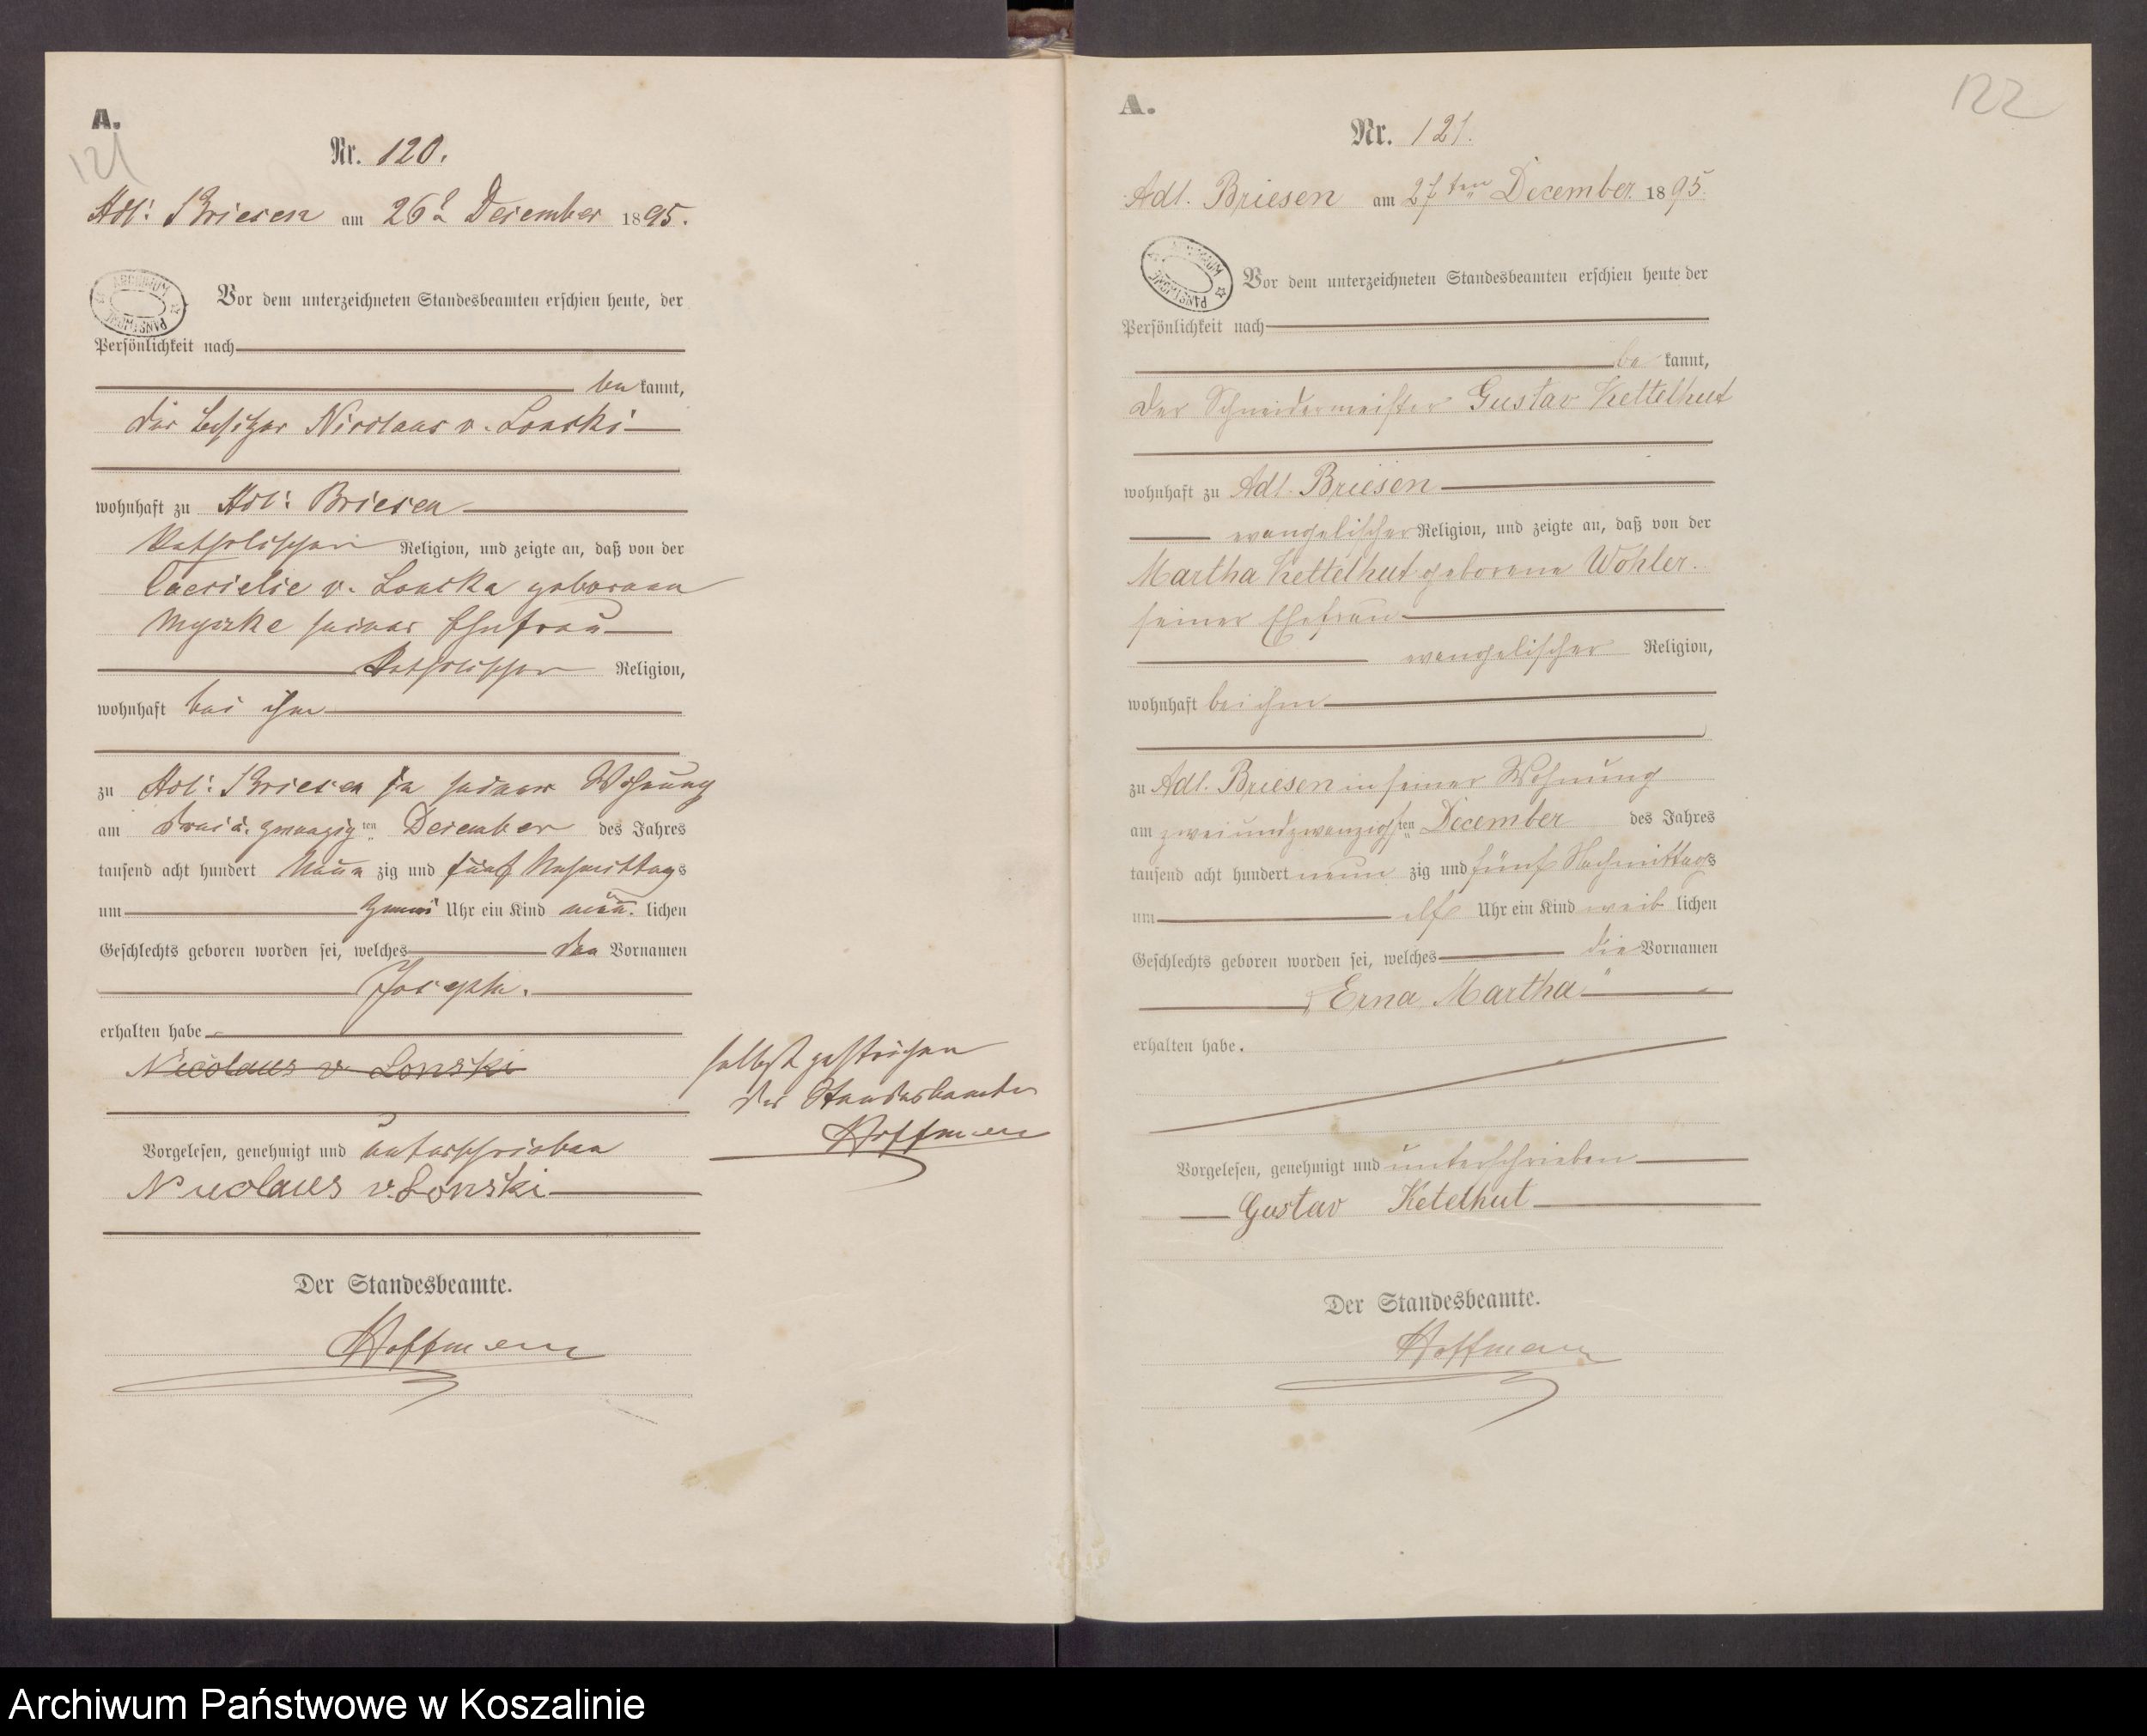 A.
121
Nr. 120.
Adl: Briesen am 26t Desember 1895.
ARCHIWUM PAŃSTWOWE
Vor dem unterzeichneten Standesbeamten erschien heute, der
Persönlichkeit nach
be kannt,
der Besitzer Nicolaus v. Lonski
wohnhaft zu Adl: Briesen
katholischen Religion, und zeigte an, daß von der
v. Lonska geboren
Myszke seiner Ehefrau
katholischer Religion,
wohnhaft bei ihm
zu Adl: Briesen in seiner Wohnung
am drei u. zwanzig ten Desember des Jahres
tausend acht hundert Neun zig und fünf Nachmittags
um Uhr ein Kind män. lichen
Geschlechts geboren worden sei, welches den Vornamen
Joseph.
erhalten habe
Nicolaus v Lonski
selbst gestrichen
der Standesbeamte
Hoffmann
Vorgelesen, genehmigt und unterschrieben
Nicolaus v. Lonski
Der Standesbeamte.
Hoffmann
A.
122
Nr. 121.
Adl. Briesen am 27ten December 1895.
ARCHIWUM PAŃSTWOWE
Vor dem unterzeichneten Standesbeamten erschien heute der
Persönlichkeit nach
be kannt,
der Schneidermeister Gustav Kettelhut
wohnhaft zu Adl. Briesen
evangelischer Religion, und zeigte an, daß von der
Martha Kettelhut geborene Wohler.
seiner Ehefrau
evangelischer Religion,
wohnhaft bei ihm
zu Adl. Briesen in seiner Wohnung
am zweiundzwanzigsten December des Jahres
tausend acht hundert neun zig und fünf Nachmittags
um elf Uhr ein Kind weib lichen
Geschlechts geboren worden sei, welches die Vornamen
„Erna Martha"
erhalten habe.
Vorgelesen, genehmigt und unterschrieben
Gustav Ketelhut
Der Standesbeamte.
Hoffmann
Archiwum Państwowe w Koszalinie